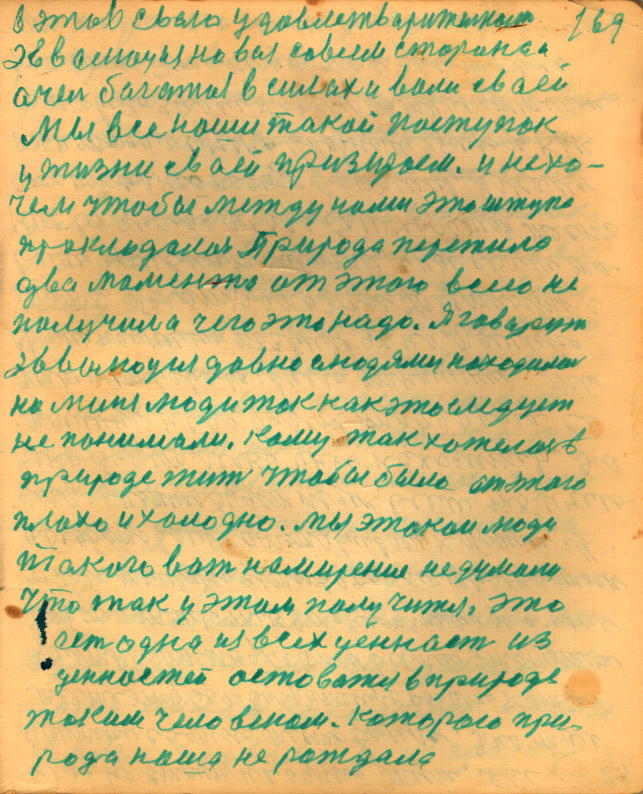 169
в этов свало удовлетварителност
Эввалюция новая совсем сторана
очен багатая в силах и воли своей
Мы все наши такой поступок
у жизни своей призираем. и нехо-
чем чтобы между нами это штупа
прокладалась Природа пережила
два момента от этого всего не
получила чего это надо. Я говарит
Эввалюция давно людями находилас
но мы люди так как это следует
не понимали. кому так хотелось в
природе жит чтобы было от этого
плохо и холодно. мы этакаи люди
такого вот намирение недумали
Что так у этам получится, это
! ест одна из всех ценаст из
ценностей остоватся в природе
таким человеком. которого при-
рода наша не рождала